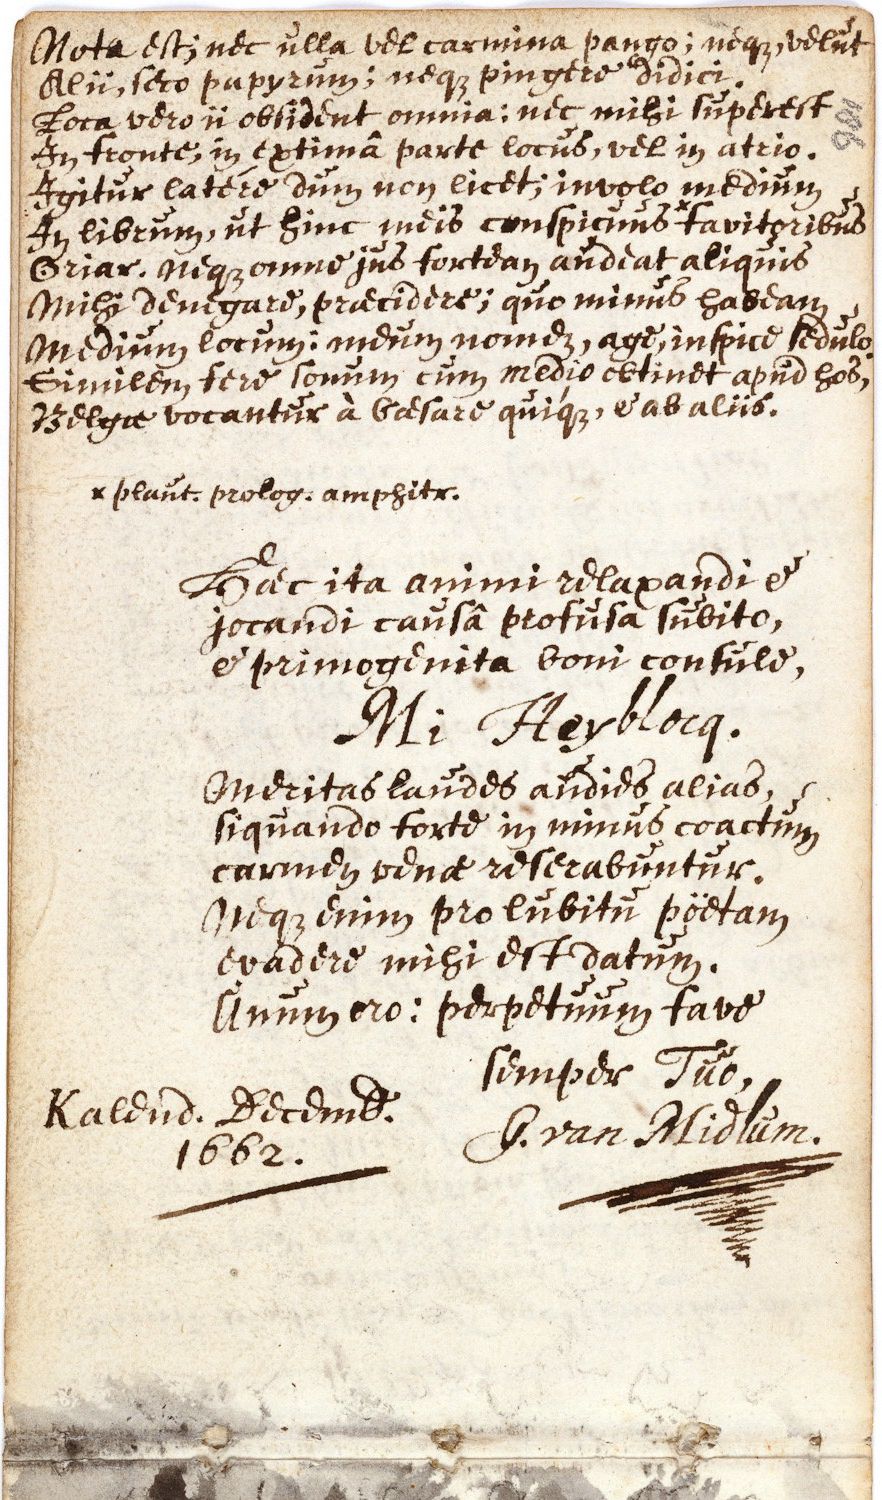 Nota est; nec ulla vel carmina pango; neq, velut
Alii, seco papyrum; neq pingere didici.
Loca vero ii obsident omnia: nec mihi superest
In fronte, in extimâ parte locus, vel in atrio.
Igitur latere dum non licet; involo medium
In librum, ut hinc meis conspicuus × favitoribus
Griar. Neq omne jus fortean audeat aliquis
Mihi denegare, præcidere; quo minus habeam
Medium locum: meum nomen, age, inspice sedulo.
Similem fere sonum cum medio obtinet apud hos,
Belgæ vocantur à Cæsare quiq, & ab aliis.
× plaut. prolog. amphitr.
Hæc ita animi relaxandi &
jocandi causâ profusa subito,
& primogenita boni consule,
Mi Heyblocq.
Meritas laudes audies alias,
siquando forte in minus coactum
carmen venæ reserabuntur.
Neq enim pro lubitu pöetam
evadere mihi est datum.
Unum oro: perpetuum fave
semper Tuo,
Kalend. Decemb.
1662.
J. van Midlum.